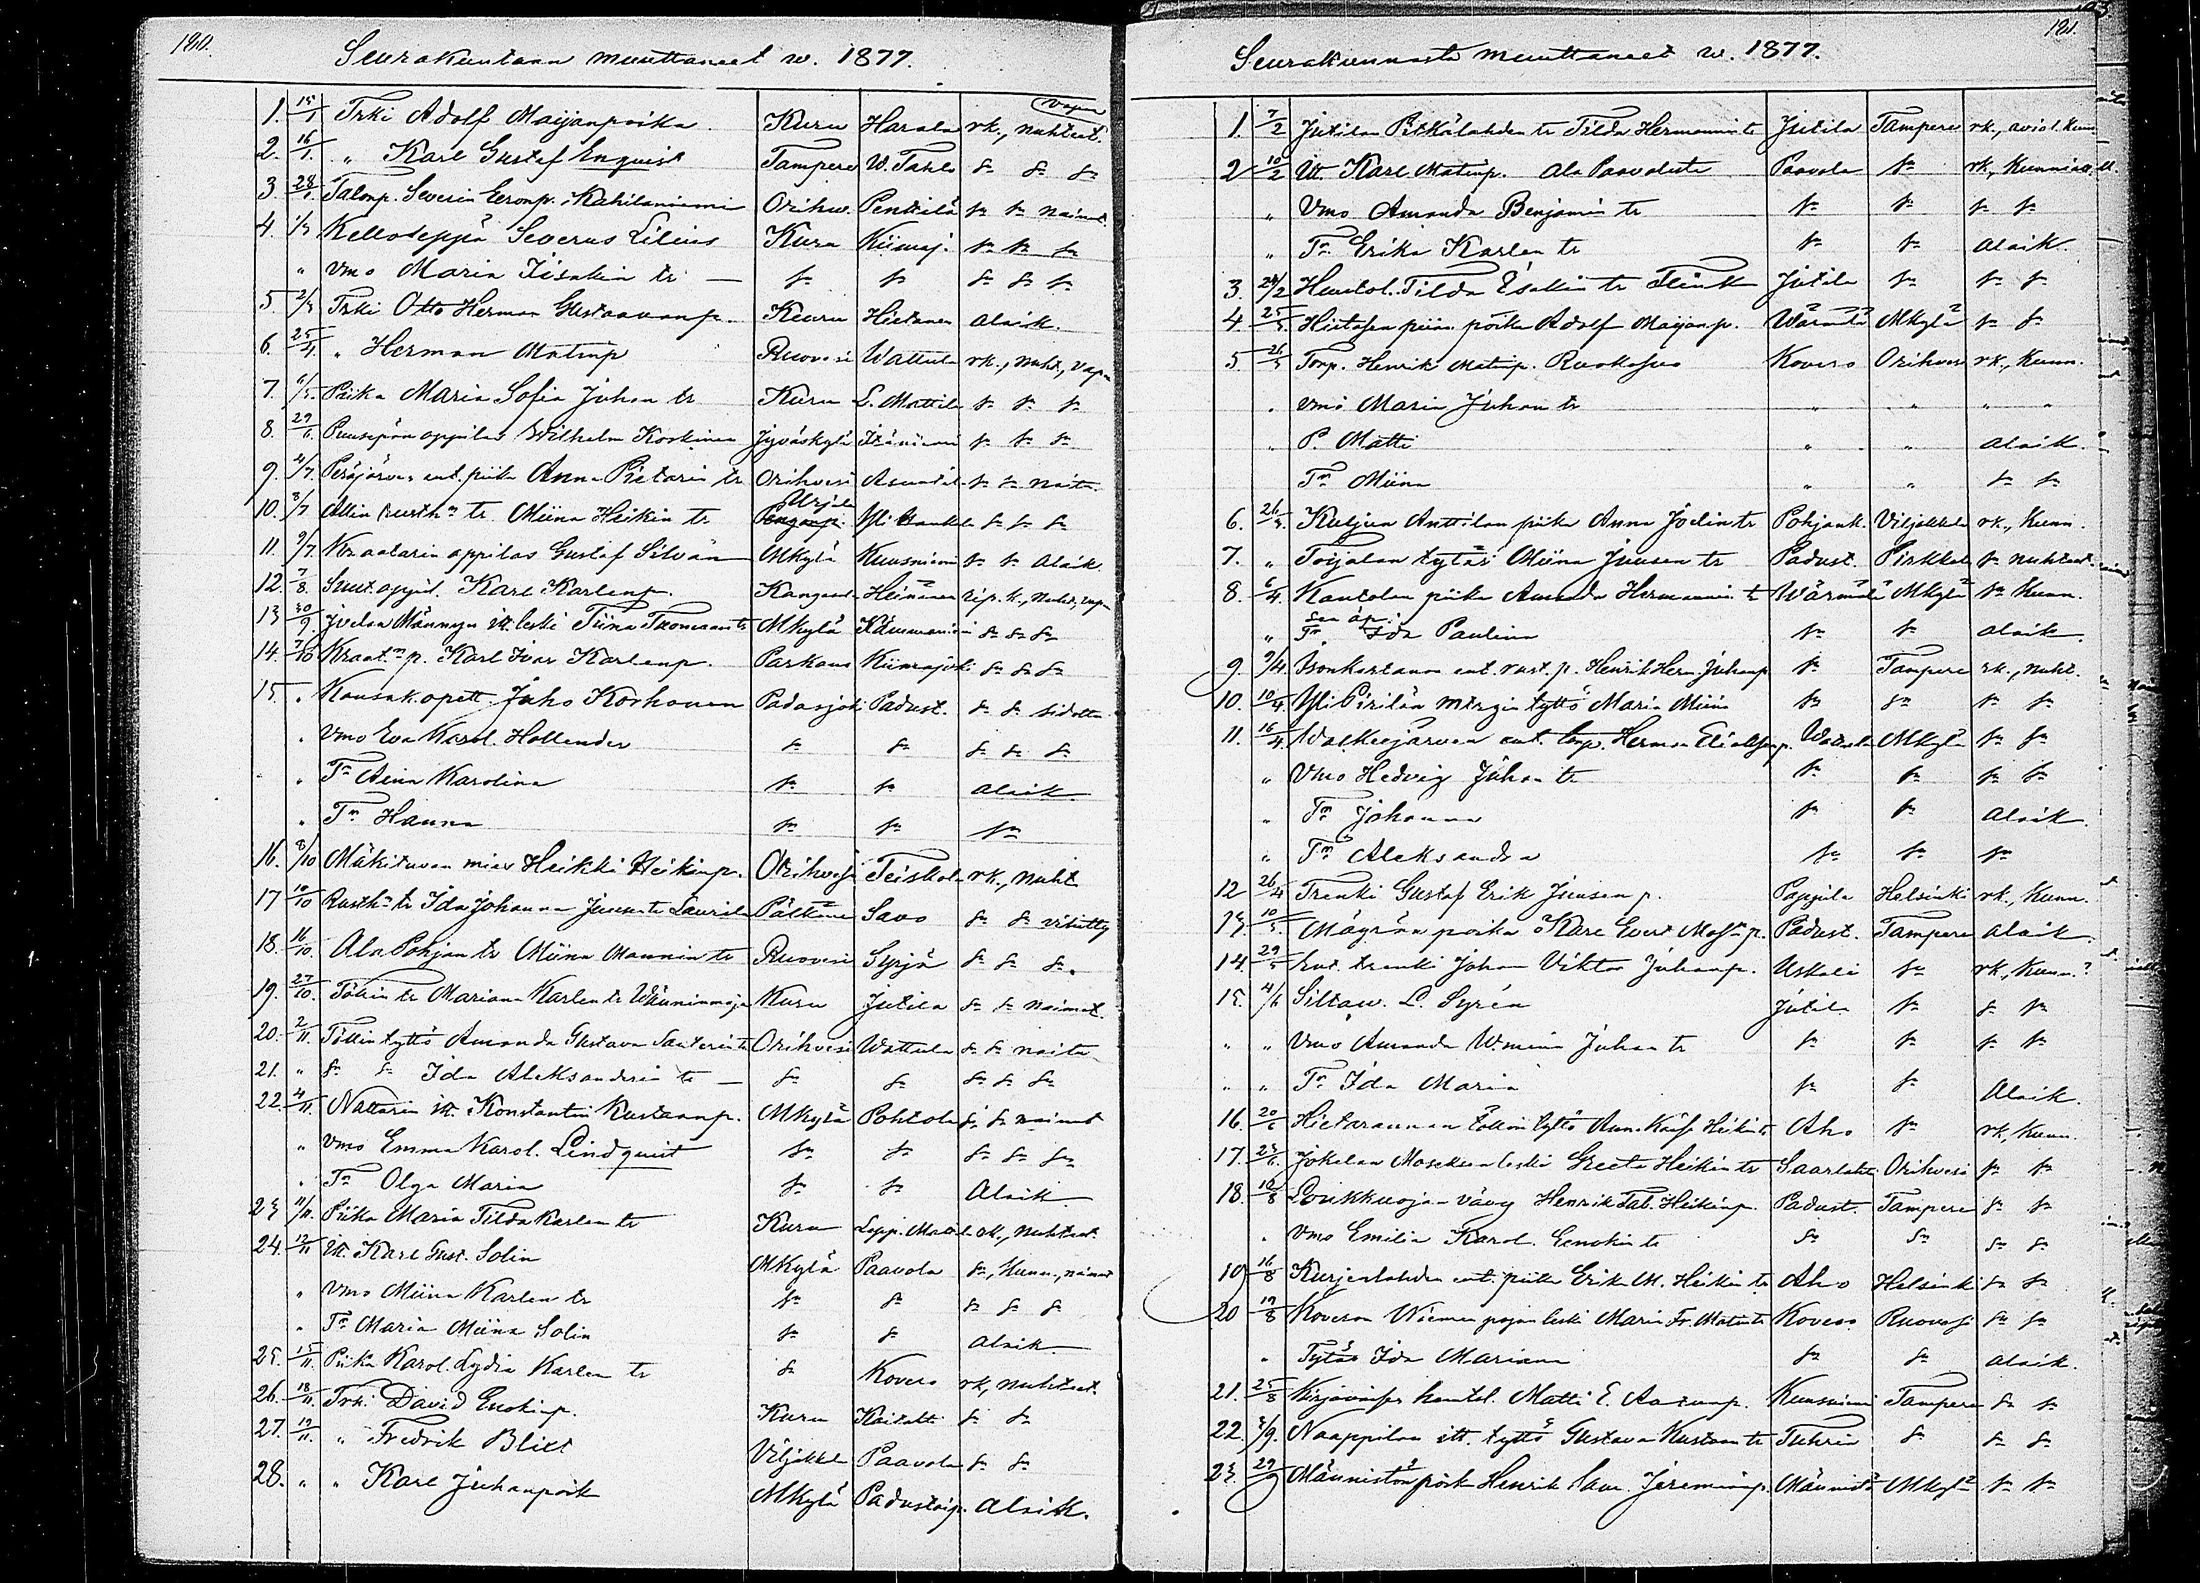 180.
Seurakuntaan muuttaneet w. 1877.
vapa
1. 15/1 Trki Adolf Maijanpoika Kuru Harala rk., nuhteet.
2. 16/1 " Karl Gustaf Enqvist Tampere W. Tahlo s:n s:n s:n
3. 28/1 Talonp. Severin Eeronp. Kahilaniemi Orihw. Penttilä s:n s:n nainut
4. 1/3 Kelloseppä Severus Lilius Kuru Kiimaj. s:n s:n s:n
" vmo Maria Iisakin tr — s:n s:n s:n s:n s:n
5. 2/3 Trki Otto Herman Gustaavanp. Keuru Hietanen alaik.
6. 25/4 " Herman Matinp Ruovesi Wattula rk., nuht., vapa
7. 6/5 Piika Maria Sofia Juhon tr Kuru L. Mattila s:n s:n s:n
8. 29/6 Puusepän oppilas Wilhelm Koskinen Jyväskylä Itäniemi s:n s:n s:n
9. 4/7 Peräjärven ent. piika Anna Pietarin tr Orihvesi s:n s:n naita.
Urjala
10. 8/7 rusth:n tr. Miina Heikin tr s:n s:n s:n
11. 9/7 Kraatarin oppilas Gustaf Silvän MKylä Kuusniemi s:n s:n alaik.
12. 7/8 Suut. oppil. Karl Karlenp. Kangasa Heinänen rip. k., nuht., vapa
13. 30/9 Jvelan Männyn itt. leski Tiina Tuomaan tr MKylä Kämmenniemi s:n s:n s:n
14. 7/10 Kraat:n p. Karl Ivar Karlenp. Parkano Kiimajoki s:n s:n s:n
15. " Kansak. opett. Juho Korhonen Padasjoki Padust. s:n s:n sidottu
" vmo Eva Karol. Hollender s:n s:n s:n s:n s:n
" Tr Aina Karolina s:n s:n alaik.
" Tr Hanna s:n s:n s:n
16. 8/10 Mäkituvan mies Heikki Heikinp. Orihvesi Teiskola rk., nuht
17 10/10 Rusth:n tr Ida Johanna Juusen tr Laurila Pälkäne Savo s:n s:n vihitty
18. 16/10. Ala Pohjan tr Miina Maunin tr Ruovesi Syrjä s:n s:n s:n
19. 27/10. Töllin tr Mariana Karlen tr Wänninmaja Kuru Jutila s:n s:n naimat.
20. 2/11. Töllin tyttö Amanda Gustava Santerin tr Orihvesi Wattula s:n s:n naita
21. " s:n s:n Ida Aleksanderin tr — s:n s:n s:n s:n s:n
22. 4/11. Nattarin itt. Konstantin Kustaanp. MKylä Pohtola s:n s:n nainut
" vmo Emma Karol. Lindqvist s:n s:n s:n s:n s:n
" Tr Olga Maria s:n s:n Alaik
23 11/11. Piika Maria Tilda Karlen tr Kuru Lapp. Mattil rk., nuhteet
24. 12/11 Itt. Karl Gust. Solin MKylä Paavola s:n, Kunn., nainut
" vmo Miina Karlen tr s:n s:n s:n s:n s:n
" Tr Maria Miina Solin s:n s:n alaik.
25. 15/11. Piika Karol. Lydia Karlen tr s:n Kovero rk, nuhteet
26. 18/11. Trki David Enokinp. Kuru s:n s:n
27. 19/11. " Fredrik Blixt Viljakkl Paavola s:n s:n
28. " " Karl Juhanpoik MKylä Padustaip. Alaik.
181.
Seurakunnasta muuttaneet w. 1877.
1. 7/2 Jutilan Pitkälahden tr Tilda Hermannin tr Jutila Tampere rk., aviol. kuu
2 10/2 Itt. Karl Matinp. Ala Paavolasta Paavola s:n rk., Kunniall.
" Vmo Amanda Benjamin tr s:n s:n s:n s:n
" Tr Erika Karlen tr s:n s:n alaik.
3. 24/2 Huutol. Tilda Esakin tr Flink Jutila s:n s:n s:n
4. 25/3 Hietasen piian poika Adolf Maijanp. Wärmälä MKylä s:n s:n
5 26/3 Torp. Henrik Matinp. Ruokosuo Kovero Orihvesi rk., Kunn.
" vmo Maria Juhan tr " " " "
" P. Matti " " alaik.
Tr Miina " " s:n s:n
6. 26/3. Kuljun Anttilan piika Anna Joelin tr Pohjank. Viljakkala rk., Kunn.
7. " Toijalan tytär Miina Juusen tr Padust. Pirkkal s:n nuhteet.
8. 6/4. Kantolan piika Amanda Hermannin tr Wärmälä MKylä s:n Kunn.
sen äp.
" Tr Ida Paulina s:n s:n alaik.
9. 9/4 Isonkartanon ent. rust. p. Henrik Herm. Juhanp s:n Tampere rk., nuht.
10. 10/4 Yli Pirilän tyttö Maria Miina s:n s:n s:n s:n
11. 16/4 Walkeejärven ent. torp. Herman Eliaksenp. Wattula MKylä s:n s:n
" Vmo Hedvig Juhan tr s:n s:n s:n s:n
" Tr Johanna s:n s:n alaik.
" Tr Aleksandra s:n s:n s:n
12 26/4 Trenki Gustaf Erik Juusen p. Pappila Helsinki rk., Kunn.
13 10/5. Mäyrän poika Karl Evert Padust. Tampere alaik.
14. 29/5 Ent. trenki Johan Viktor Juhanp. Uskali s:n rk., Kunn.
15. 4/6 Siltaw. L. Syrén Jutila s:n s:n s:n
" " Vmo Amanda W.mina Juhan tr s:n s:n s:n s:n
" " Tr Ida Maria s:n s:n Alaik.
16. 20/6 Hietarannan töllin tyttö Anna Kaisa Heikin tr Aho s:n rk, Kunn.
17. 23/6. Jokelan leski Greeta Heikin tr Saarlahti Orihvesi s:n s:n
18. 10/8 Loukkuoja vävy Henrik Tab. Heikinp. Padust. Tampere s:n s:n
" vmo Emilia Karol. Eenokin tr s:n s:n s:n s:n
19 16/8 Kurjenlahden ent. piika Erika M. Heikin tr Aho Helsinki s:n s:n
20 19/8 Koveron Niemen pojan leski Maria Fr. Matin tr Kovero Ruovesi s:n s:n
" Tytär Ida Mariana s:n s:n alaik.
21. 25/8 Matti E. Kuusniemi Tampere s:n s:n
22. 3/9. Naappilan itt. tyttö Gustava Kustaan tr Tuhria s:n s:n s:n
23. 29/9 Männistön poik Henrik Jeremianp. Männistö MKylä s:n s:n